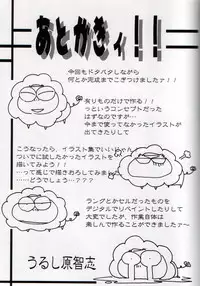 あとがきィ!!
今回もドタバタしながら
何とか完成までこぎつけましたァ!!
有りものだけで作る!!
っというコンセプトだった
はずなのですが…
今まで使ってなかったイラストが
出てきたりして
こうなったら、イラスト集でいいじゃん
ついに試したかったイラストを
…って感じで描きわろしてみました
どうでしょう…???
ラングとかセルだったものを
デジタルでリペイントしたりして
大変でしたが、作業自体は
楽しんで作ることができましたァ～
うるし原智志